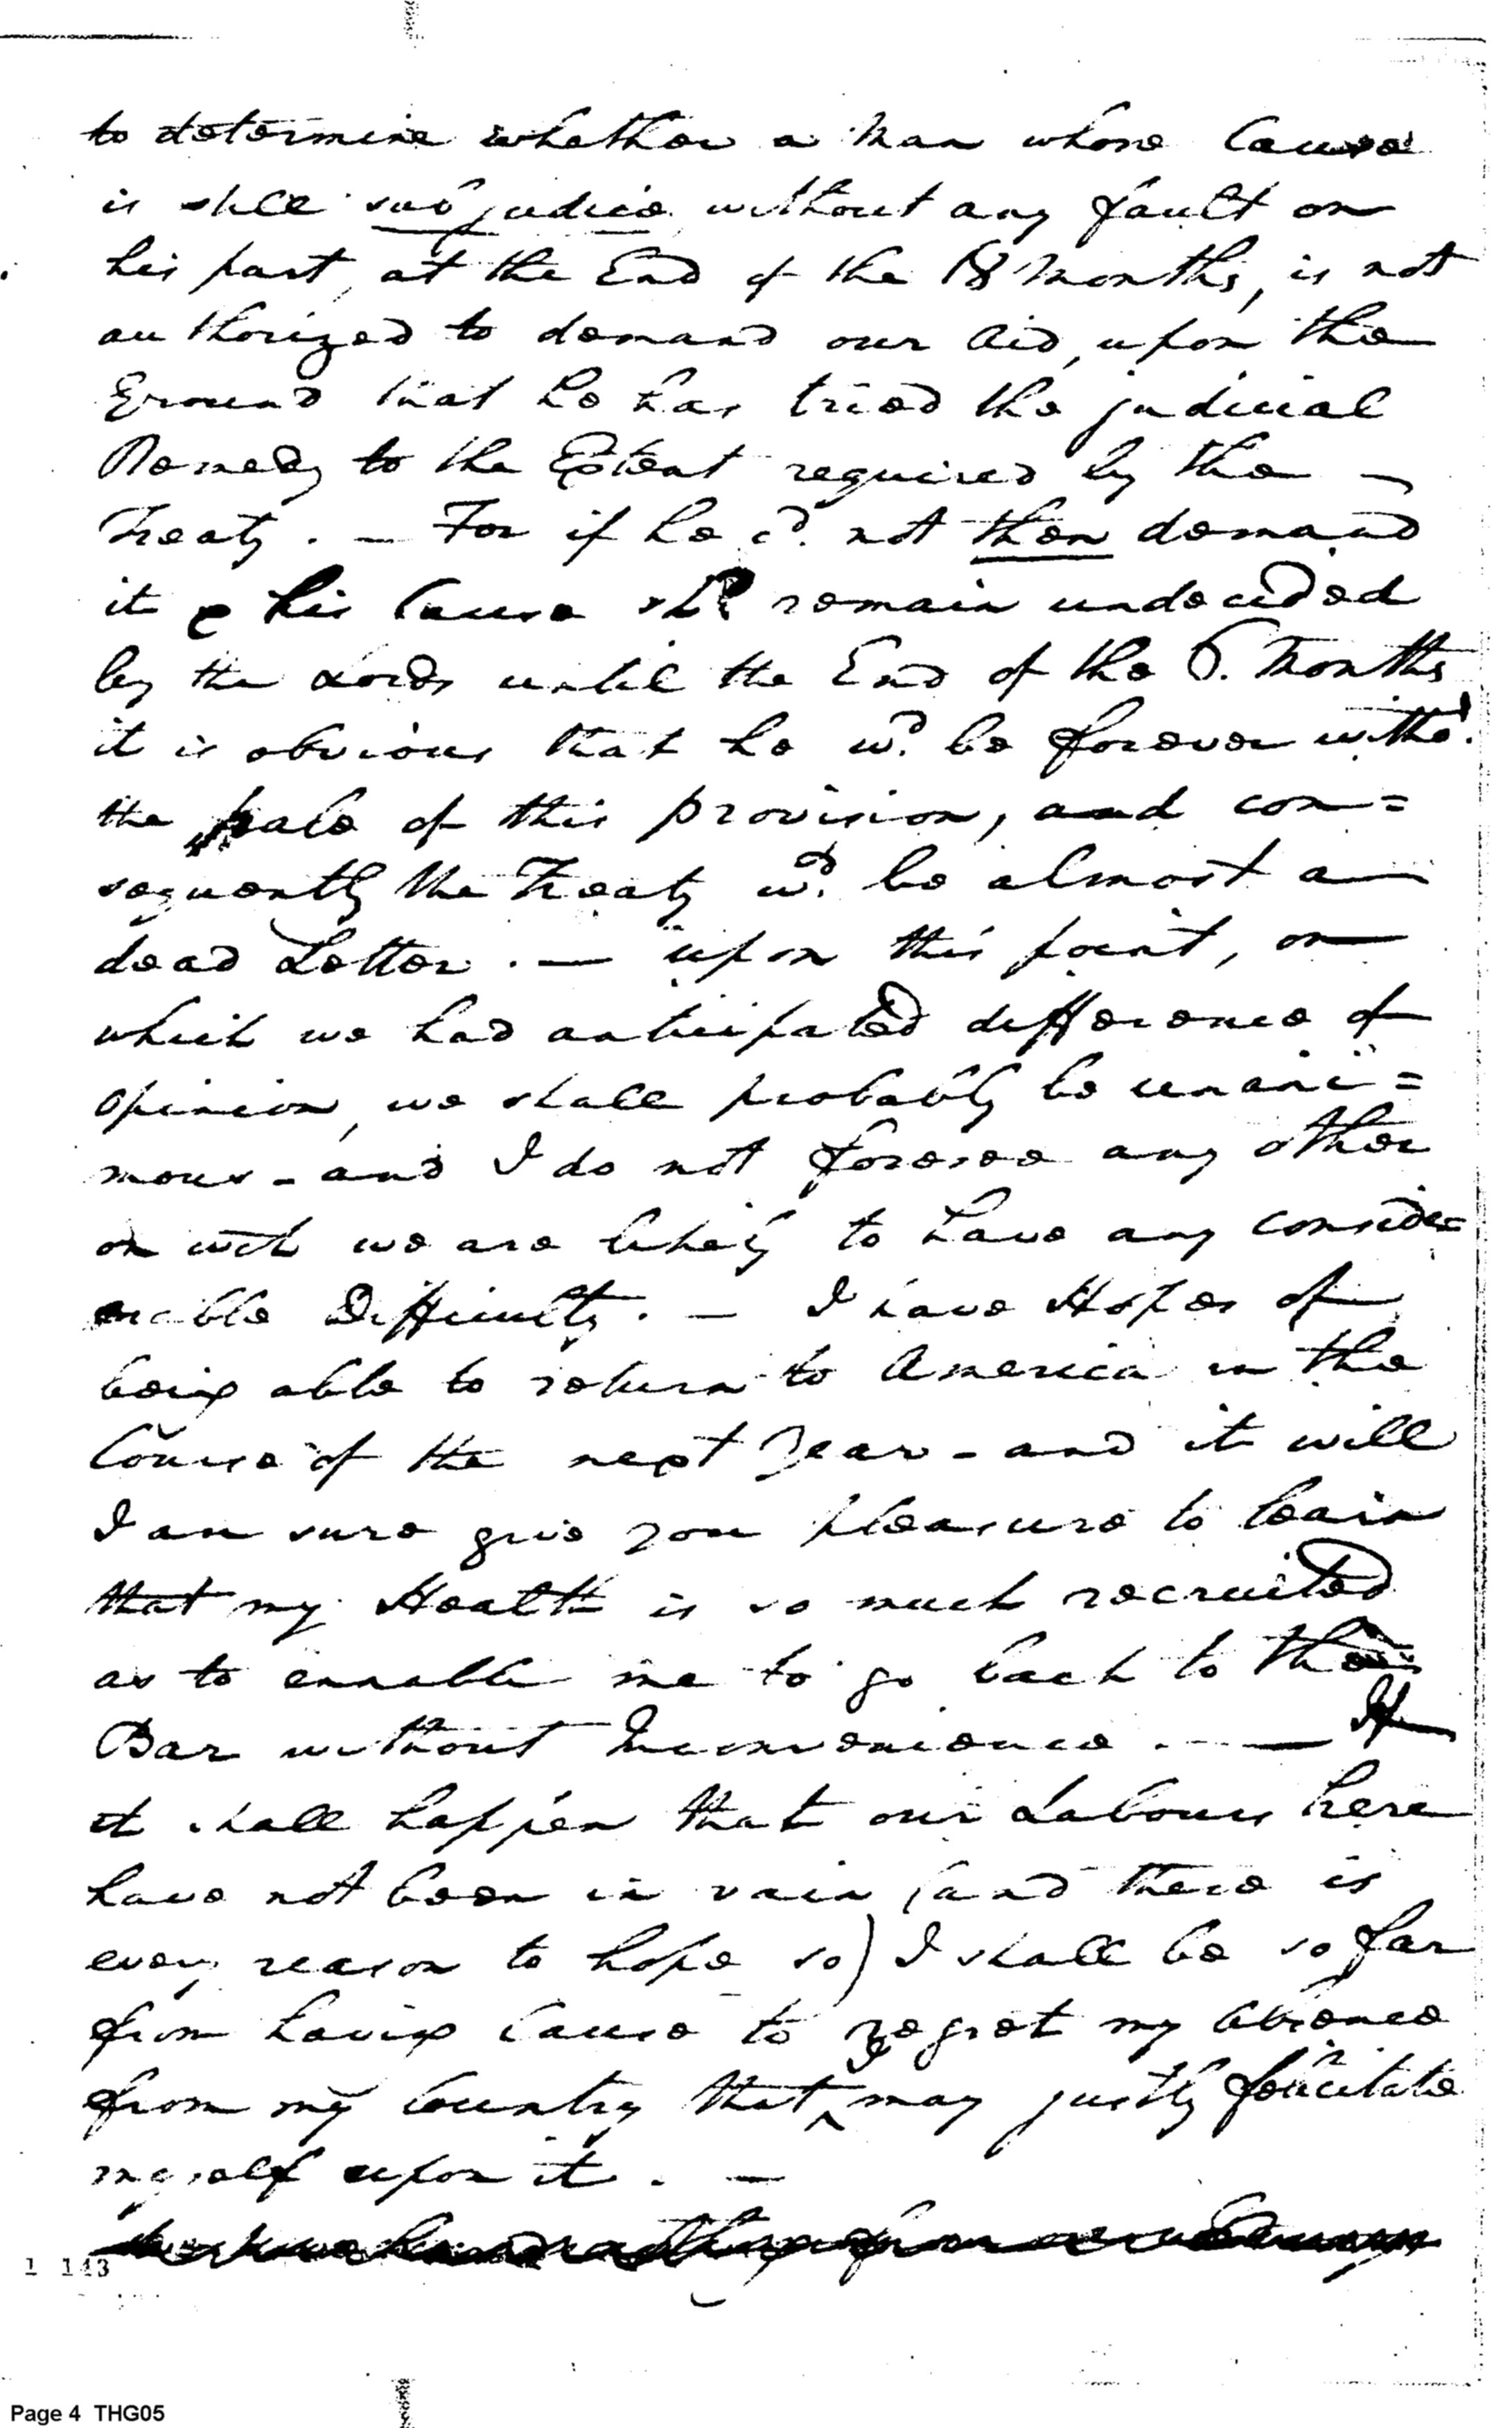 to determine whether a Man whose Cause
is still sub judice without any fault on
his part, at the End of the 18 Months, is not
authorized to demand our Aid, upon the
Ground that he has tried the judicial
Remedy to the Extent required by the —
Treaty. — For if he cd. not then demand
it & his Cause shd. remain undecided
by the Lords until the End of the 6. Months
it is obvious that he wd. be forever witht.
the pale of this provision, and con=
sequently the Treaty wd. be almost a
dead Letter. — upon this point, on
which we had anticipated difference of
opinion, we shall probably be unani=
mous - and I do not foresee any other
on wch we are likely to have any conside=
rable Difficulty. — I have Hopes of
being able to return to America in the
Course of the next Year - and it will
I am sure give you pleasure to learn
that my Health is so much recruited
as to ennable me to go back to the
Bar without Inconvenience. — If
it shall happen that our Labours here
have not been in vain (and there is
every reason to hope so) I shall be so far
from having Cause to regret my Absence
from my Country that ^I may justly felicitate
myself upon it. —
1 143
Page 4 THG05